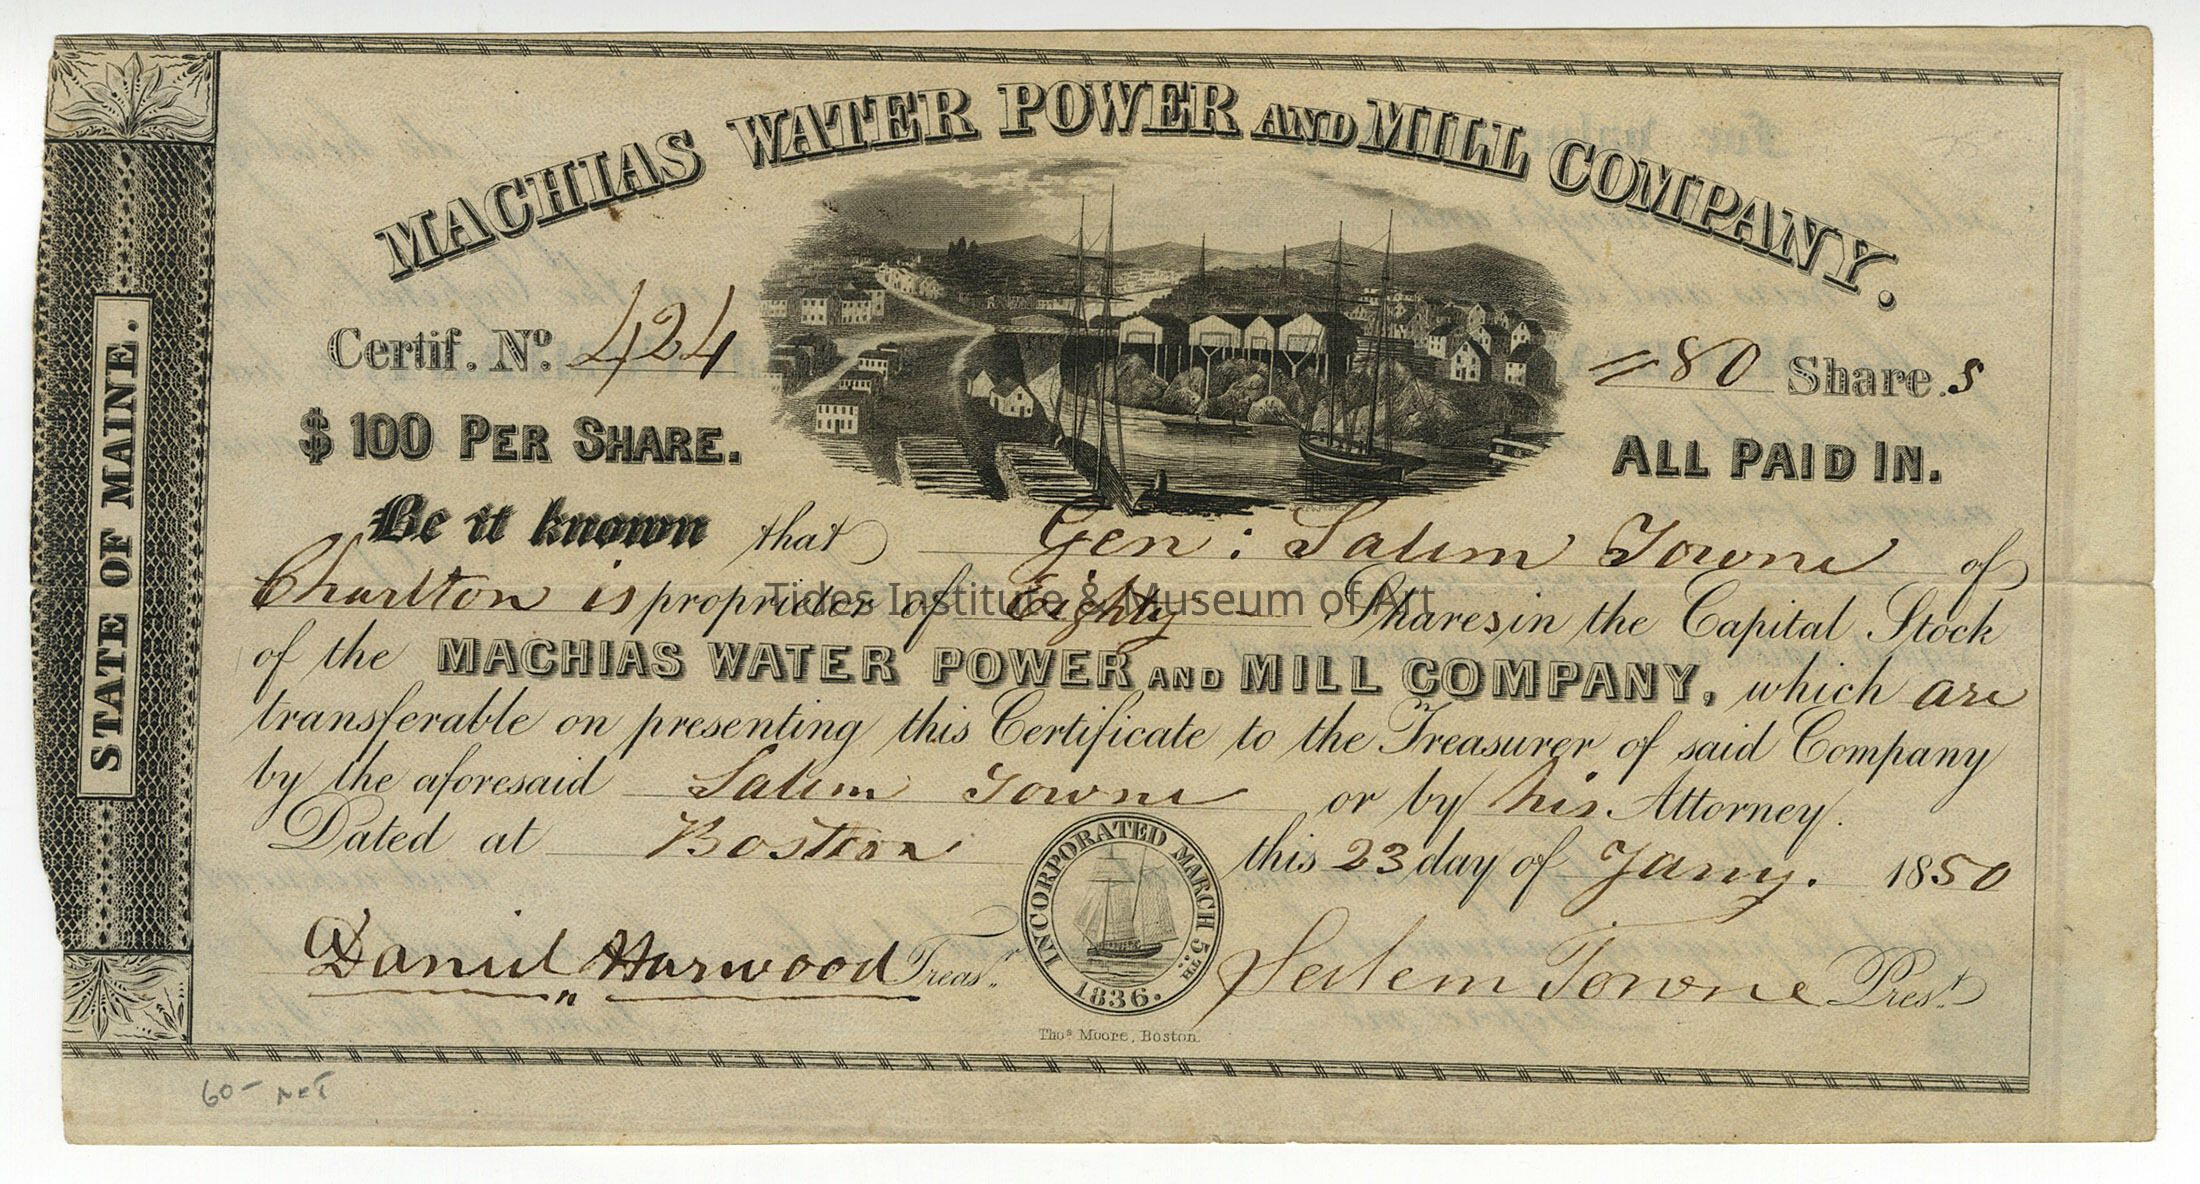 MACHIAS WATER POWER AND MILL COMPANY.
Certif. No. 424
=80 Share.s
$100 PER SHARE.
ALL PAID IN.
Be it known that Gen: Salem Towne of
Charlton is proprietor of Eighty — Shares in the Capital Stock
Tides Institute & Museum of Art
of the MACHIAS WATER POWER AND MILL COMPANY, which are
transferable on presenting this Certificate to the Treasurer of said Company
by the aforesaid Salem Towne or by his Attorney.
Dated at Boston this 23 day of Jany. 1850
Daniel Harwood Treasr.
INCORPORATED MARCH 5TH. 1836.
Salem Towne Prest.
Thos Moore, Boston.
STATE OF MAINE.
60- net